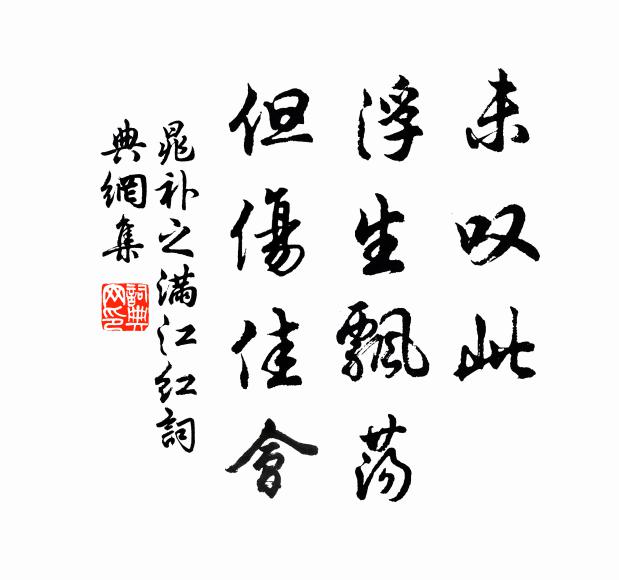 未叹此
浮生飄荡
但傷佳會
晁补之满江红詞
典網集
詞典网印